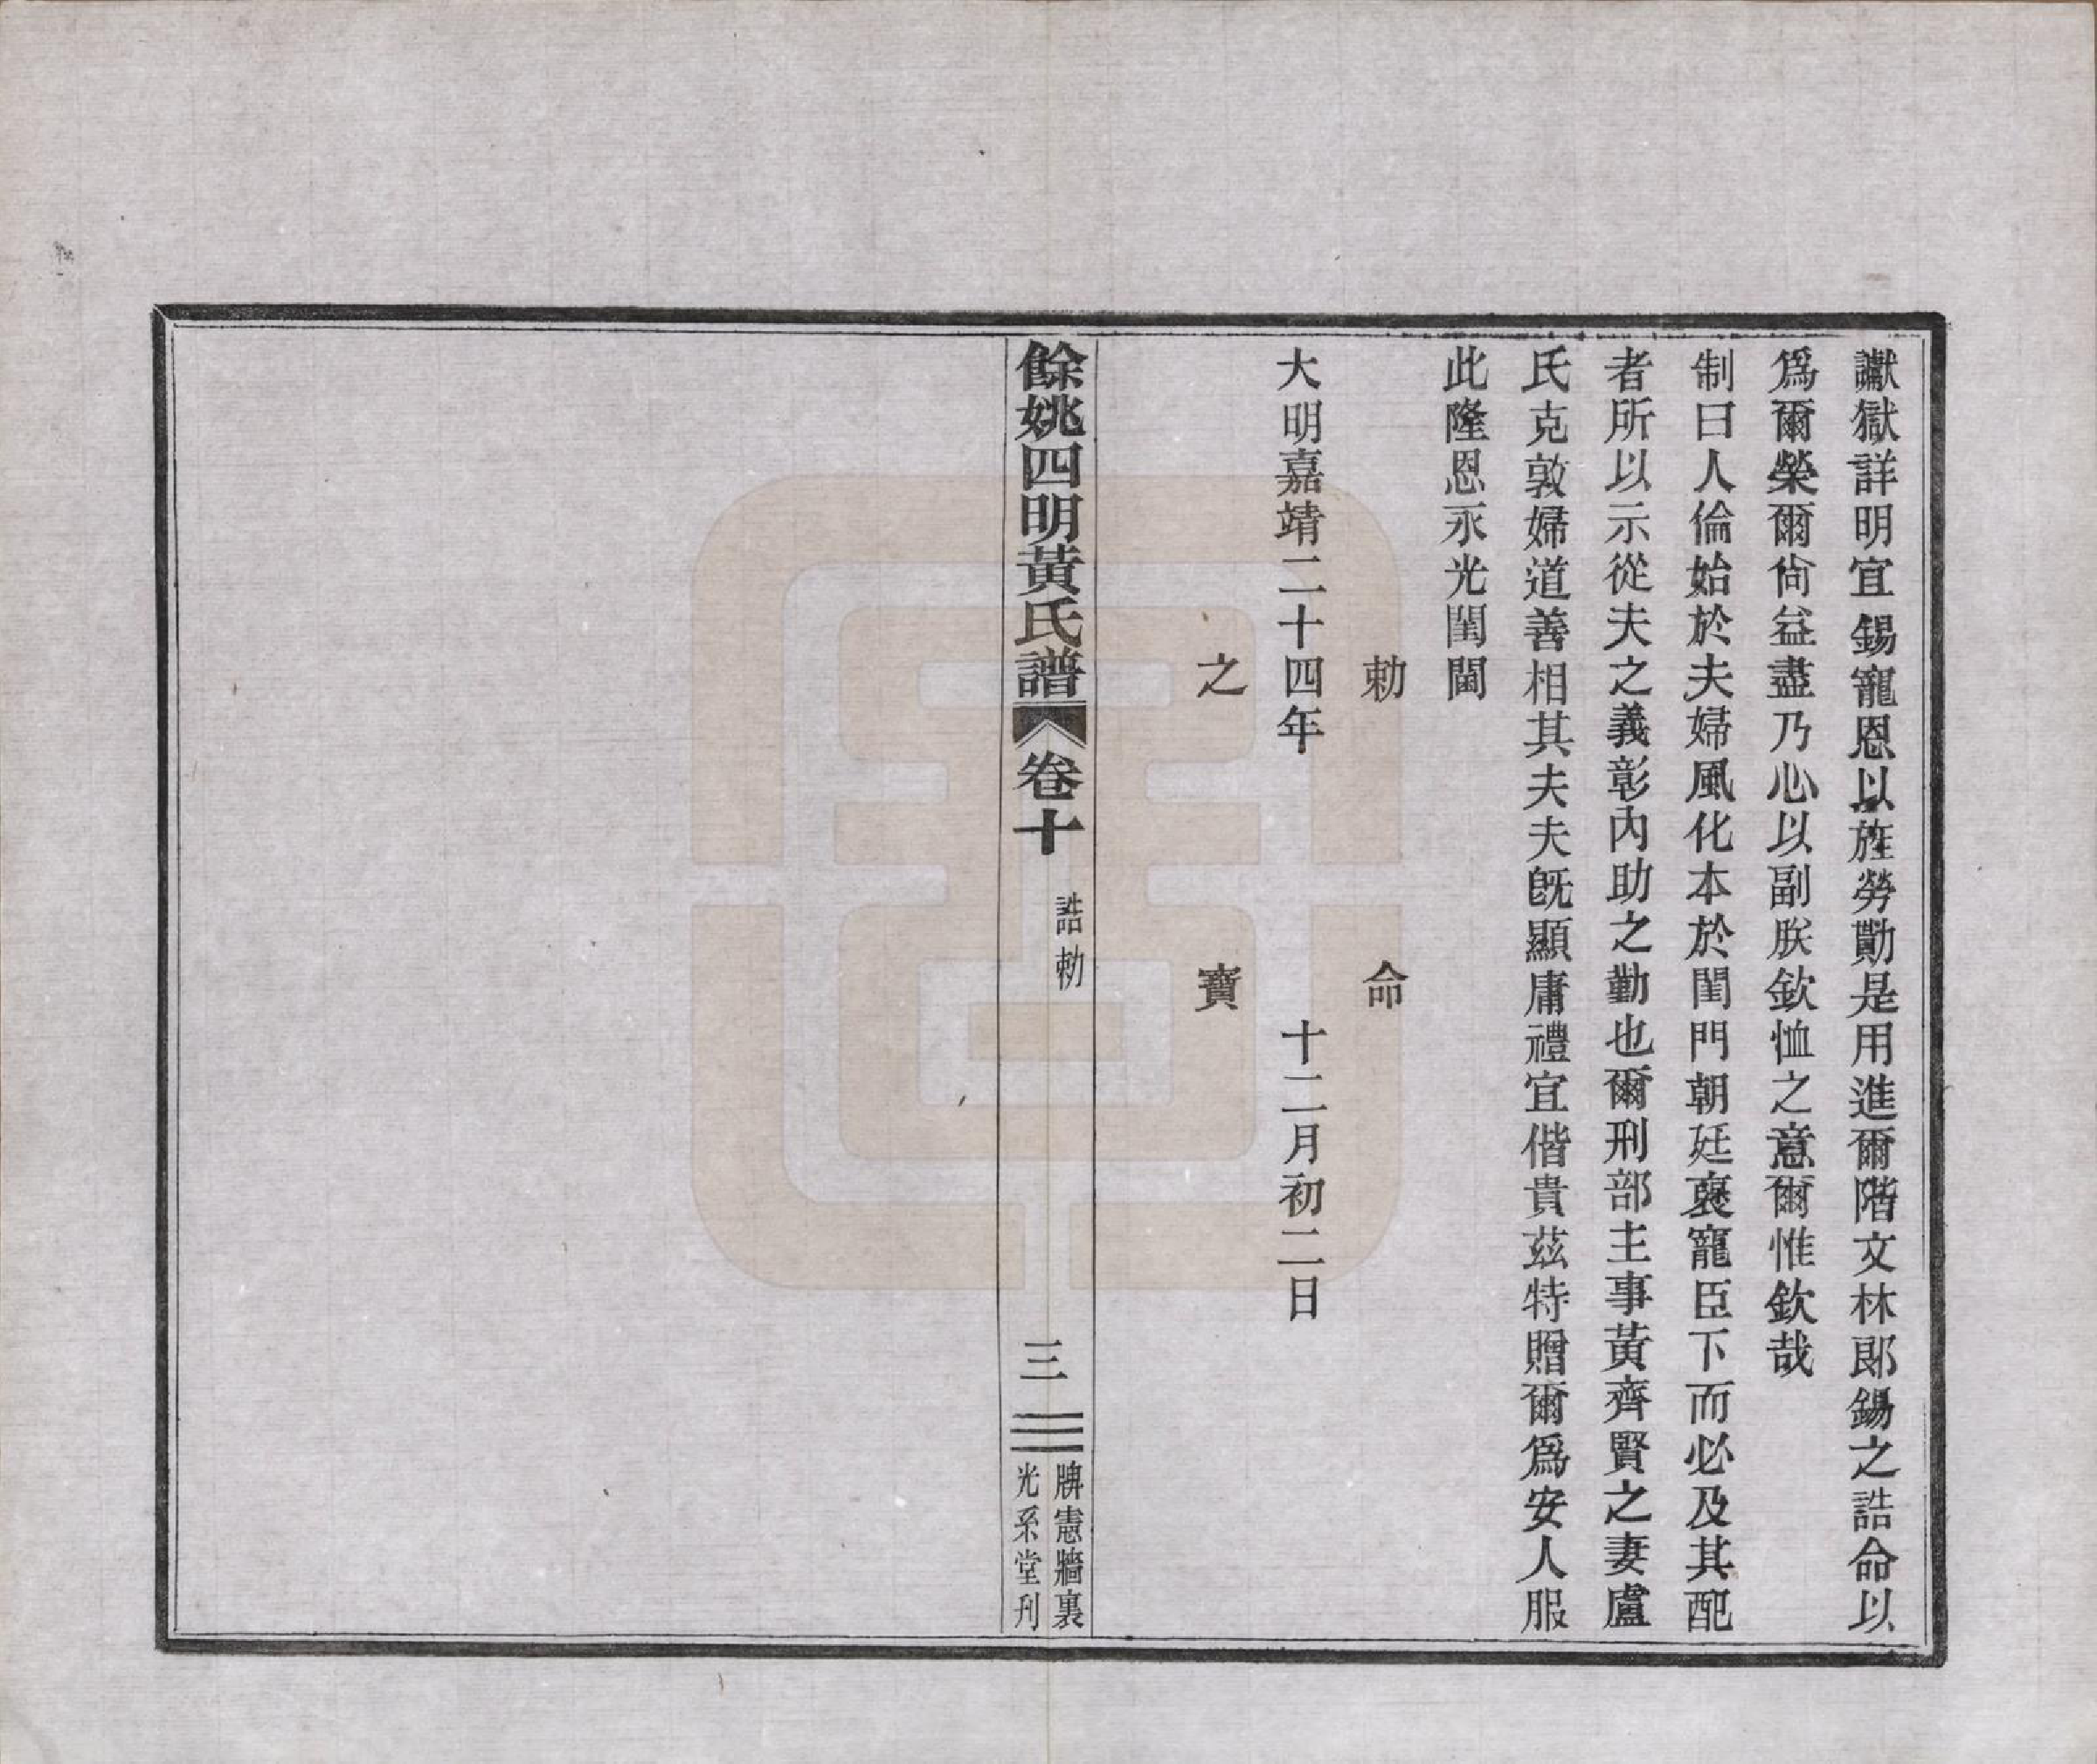 讞獄詳明宜錫寵恩以旌勞勩是用進爾階文林郎錫之誥命以
爲爾榮爾尙益盡乃心以副朕欽恤之意爾惟欽哉
制曰人倫始於夫婦風化本於閨門朝廷襃寵臣下而必及其配
者所以示從夫之義彰內助之勤也爾刑部主事黃齊賢之妻盧
氏克敦婦道善相其夫夫旣顯庸禮宜偕貴茲特贈爾爲安人服
此隆恩永光閨閫
勅命
大明嘉靖二十四年十二月初二日
之寶
餘姚四明黃氏譜 卷十 誥勅 三 牌憲牆裏
光系堂刋